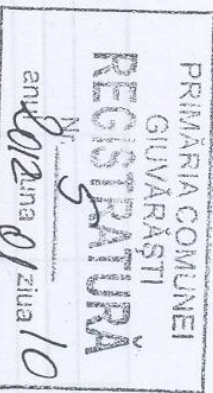 PRIMĂRIA COMUNEI
GIUVĂRĂŞTI
REGISTRATURĂ
Nr. 5
anul 2012 luna 01 ziua 10